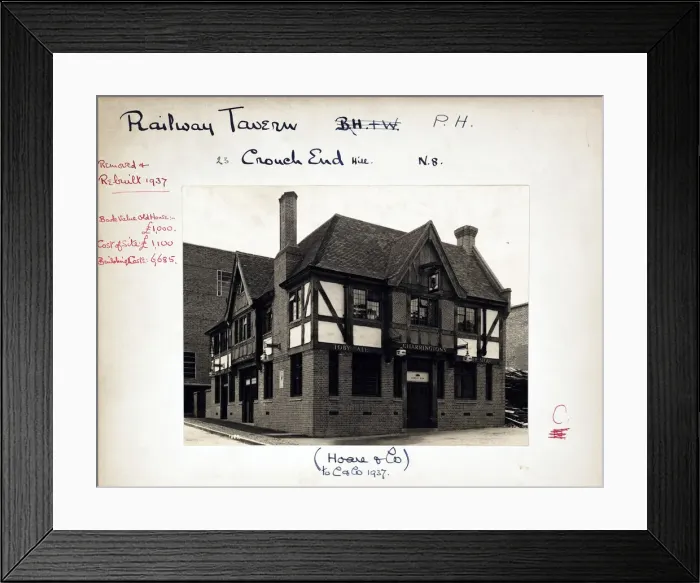 Railway Tavern B.H.+W. P.H.
23 Crouch End Hill. N.8.
Removed &
Rebuilt 1937
Book Value Old House:-
£1,000.
Cost of Site: £1,100
Building Cost: 6,685.
TOBY ALE
CHARRINGTONS
C
(Hoare & Co)
to C & Co 1937.